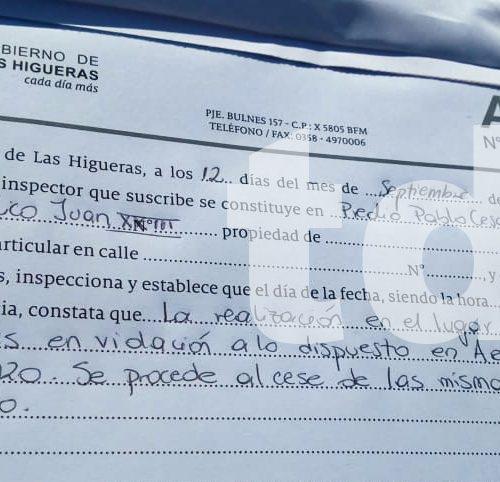 BIERNO DE
S HIGUERAS
cada día más
PJE. BULNES 157 - C.P.: X 5805 BFM
TELÉFONO / FAX: 0358 - 4970006
A
N°
de Las Higueras, a los 12 días del mes de Septiembre de
inspector que suscribe se constituye en Predio Pablo Cesa
ico Juan XXIII propiedad de
articular en calle N° , y
s, inspecciona y establece que el día de la fecha, siendo la hora
ia, constata que La realización en el lugar
s en violación a lo dispuesto en Ae
20. Se procede al cese de las mismo
o.